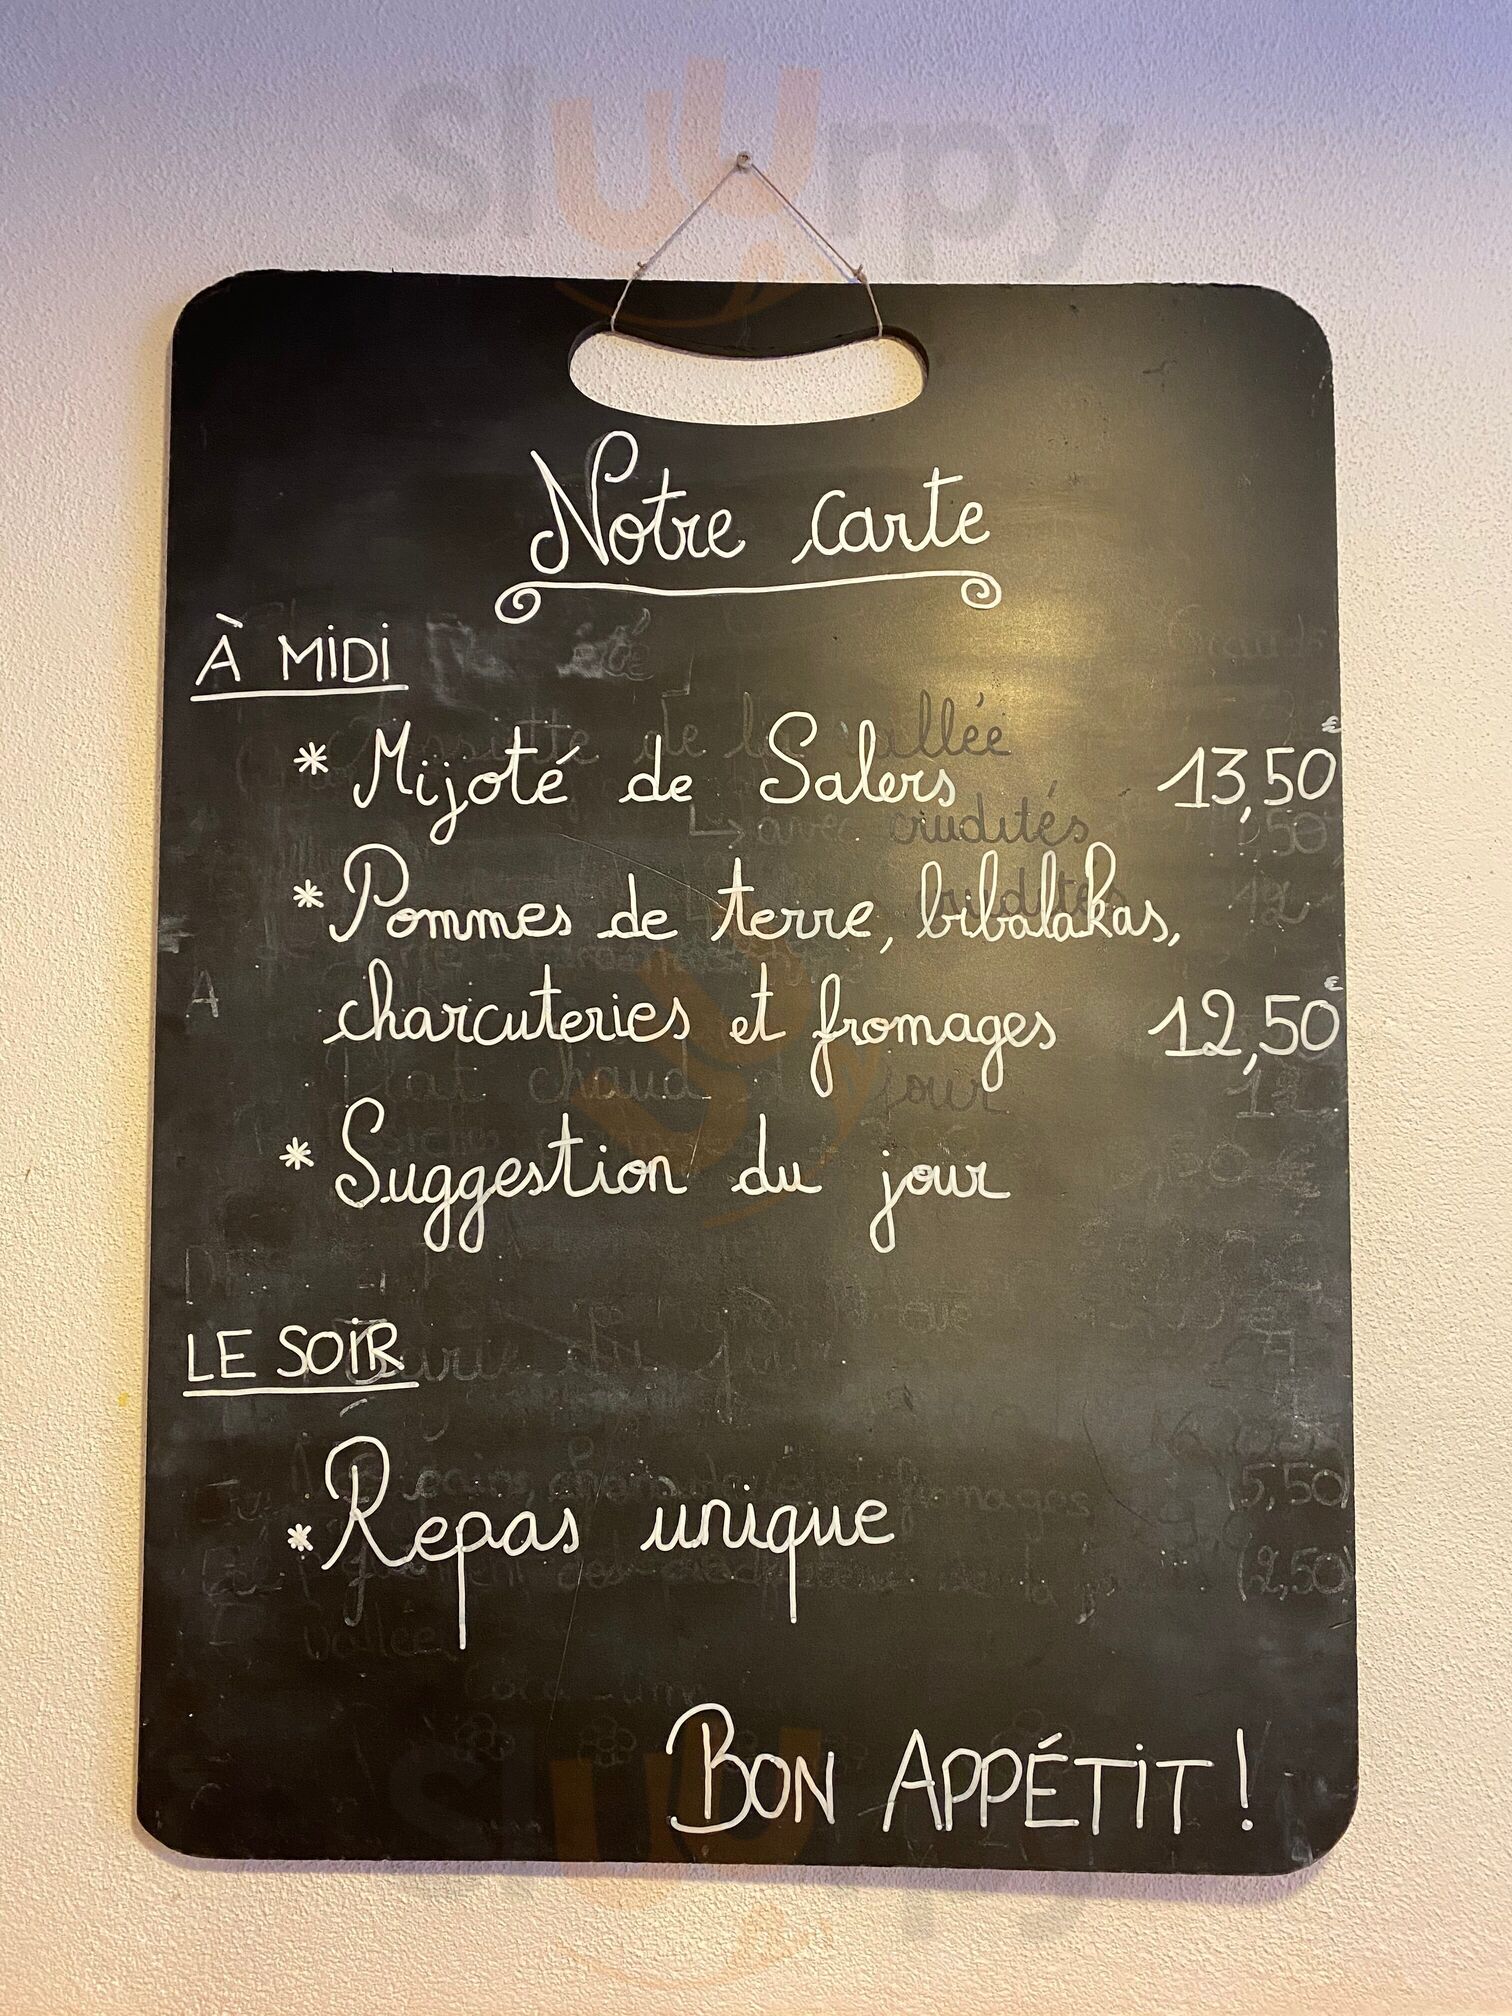 sluurpy
Notre carte
À MIDI
* Mijoté de Salers 13,50€
* Pommes de terre, bibalakas,
charcuteries et fromages 12,50€
* Suggestion du jour
LE SOIR
* Repas unique
BON APPÉTIT !